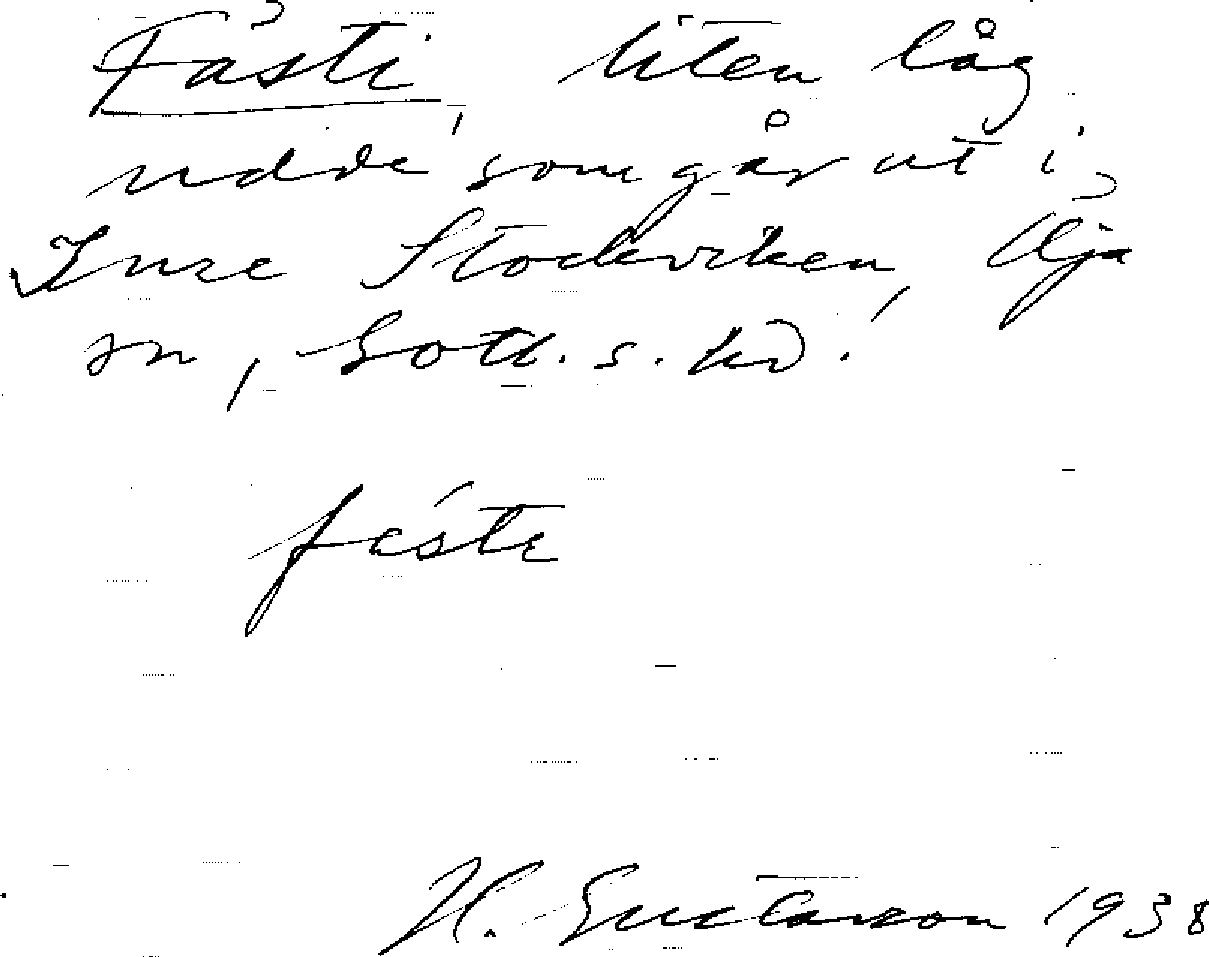 Fåsti, liten låg
udde som går ut i
Inre Stockviken, Öja
sn, Gotl. s. hd.
fåsti
H. Gustavson 1938